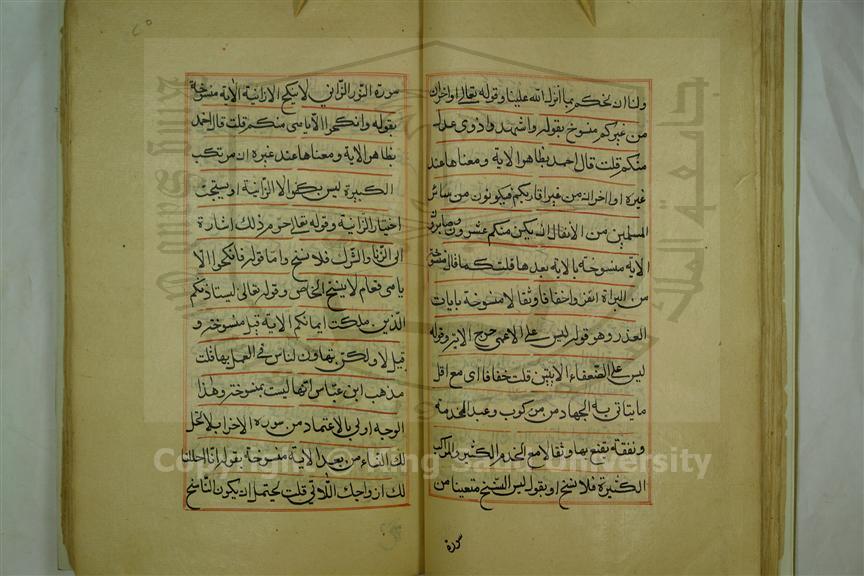 وان احكم بما أنزل الله علينا وقوله تعالى او اخران
من غيركم منسوخ بقوله واشهدوا ذوى عدل
منكم قلت قال احمد بظاهر الاية ومعناها عند
غيره او اخران من غير اقاربكم فيكونون من سائر
المسلمين من الانفال ان يكن منكم عشرون صابرون
الاية منسوخة بالاية بعدها قلت كما قال منسوخ
من البراة انفروا خفافا وثقالا منسوخة بايات
العذر وهو قوله ليس على الاعمى حرج الاية وقوله
ليس على الضعفاء الايتين قلت خفافا اى مع اقل
ما يتاتى به الجهاد من مركوب وعبد للخدمة
ونفقة يقنع بها وثقالا مع الخدم الكثير والمراكب
الكثيرة فلا نسخ او يقول ليس النسخ متعينا من
سورة
سورة النور الزانى لا ينكح الا زانية الاية منسوخة
بقوله وانكحوا الايامى منكم قلت قال احمد
بظاهر الاية ومعناها عند غيره ان مرتكب
الكبيرة ليس بكفو الا الزانية او يستحب
اختيار الزانية وقوله تعالى حرم ذلك اشارة
الى الزنا والشرك فلا نسخ واما قوله فانكحوا الا
يامى فعام لا ينسخ الخاص وقوله تعالى ليستاذنكم
الذين ملكت ايمانكم الاية قيل منسوخة و
قيل لا ولكن تهاون الناس فى العمل بها قلت
مذهب ابن عباس انها ليست بمنسوخة وهذا
الوجه اولى بالاعتماد من سورة الاحزاب لا يحل
لك النساء من بعد الاية منسوخة بقوله انا احللنا
لك ازواجك اللاتى قلت يحتمل ان يكون الناسخ
Copyright © King Saud University
جامعة الملك